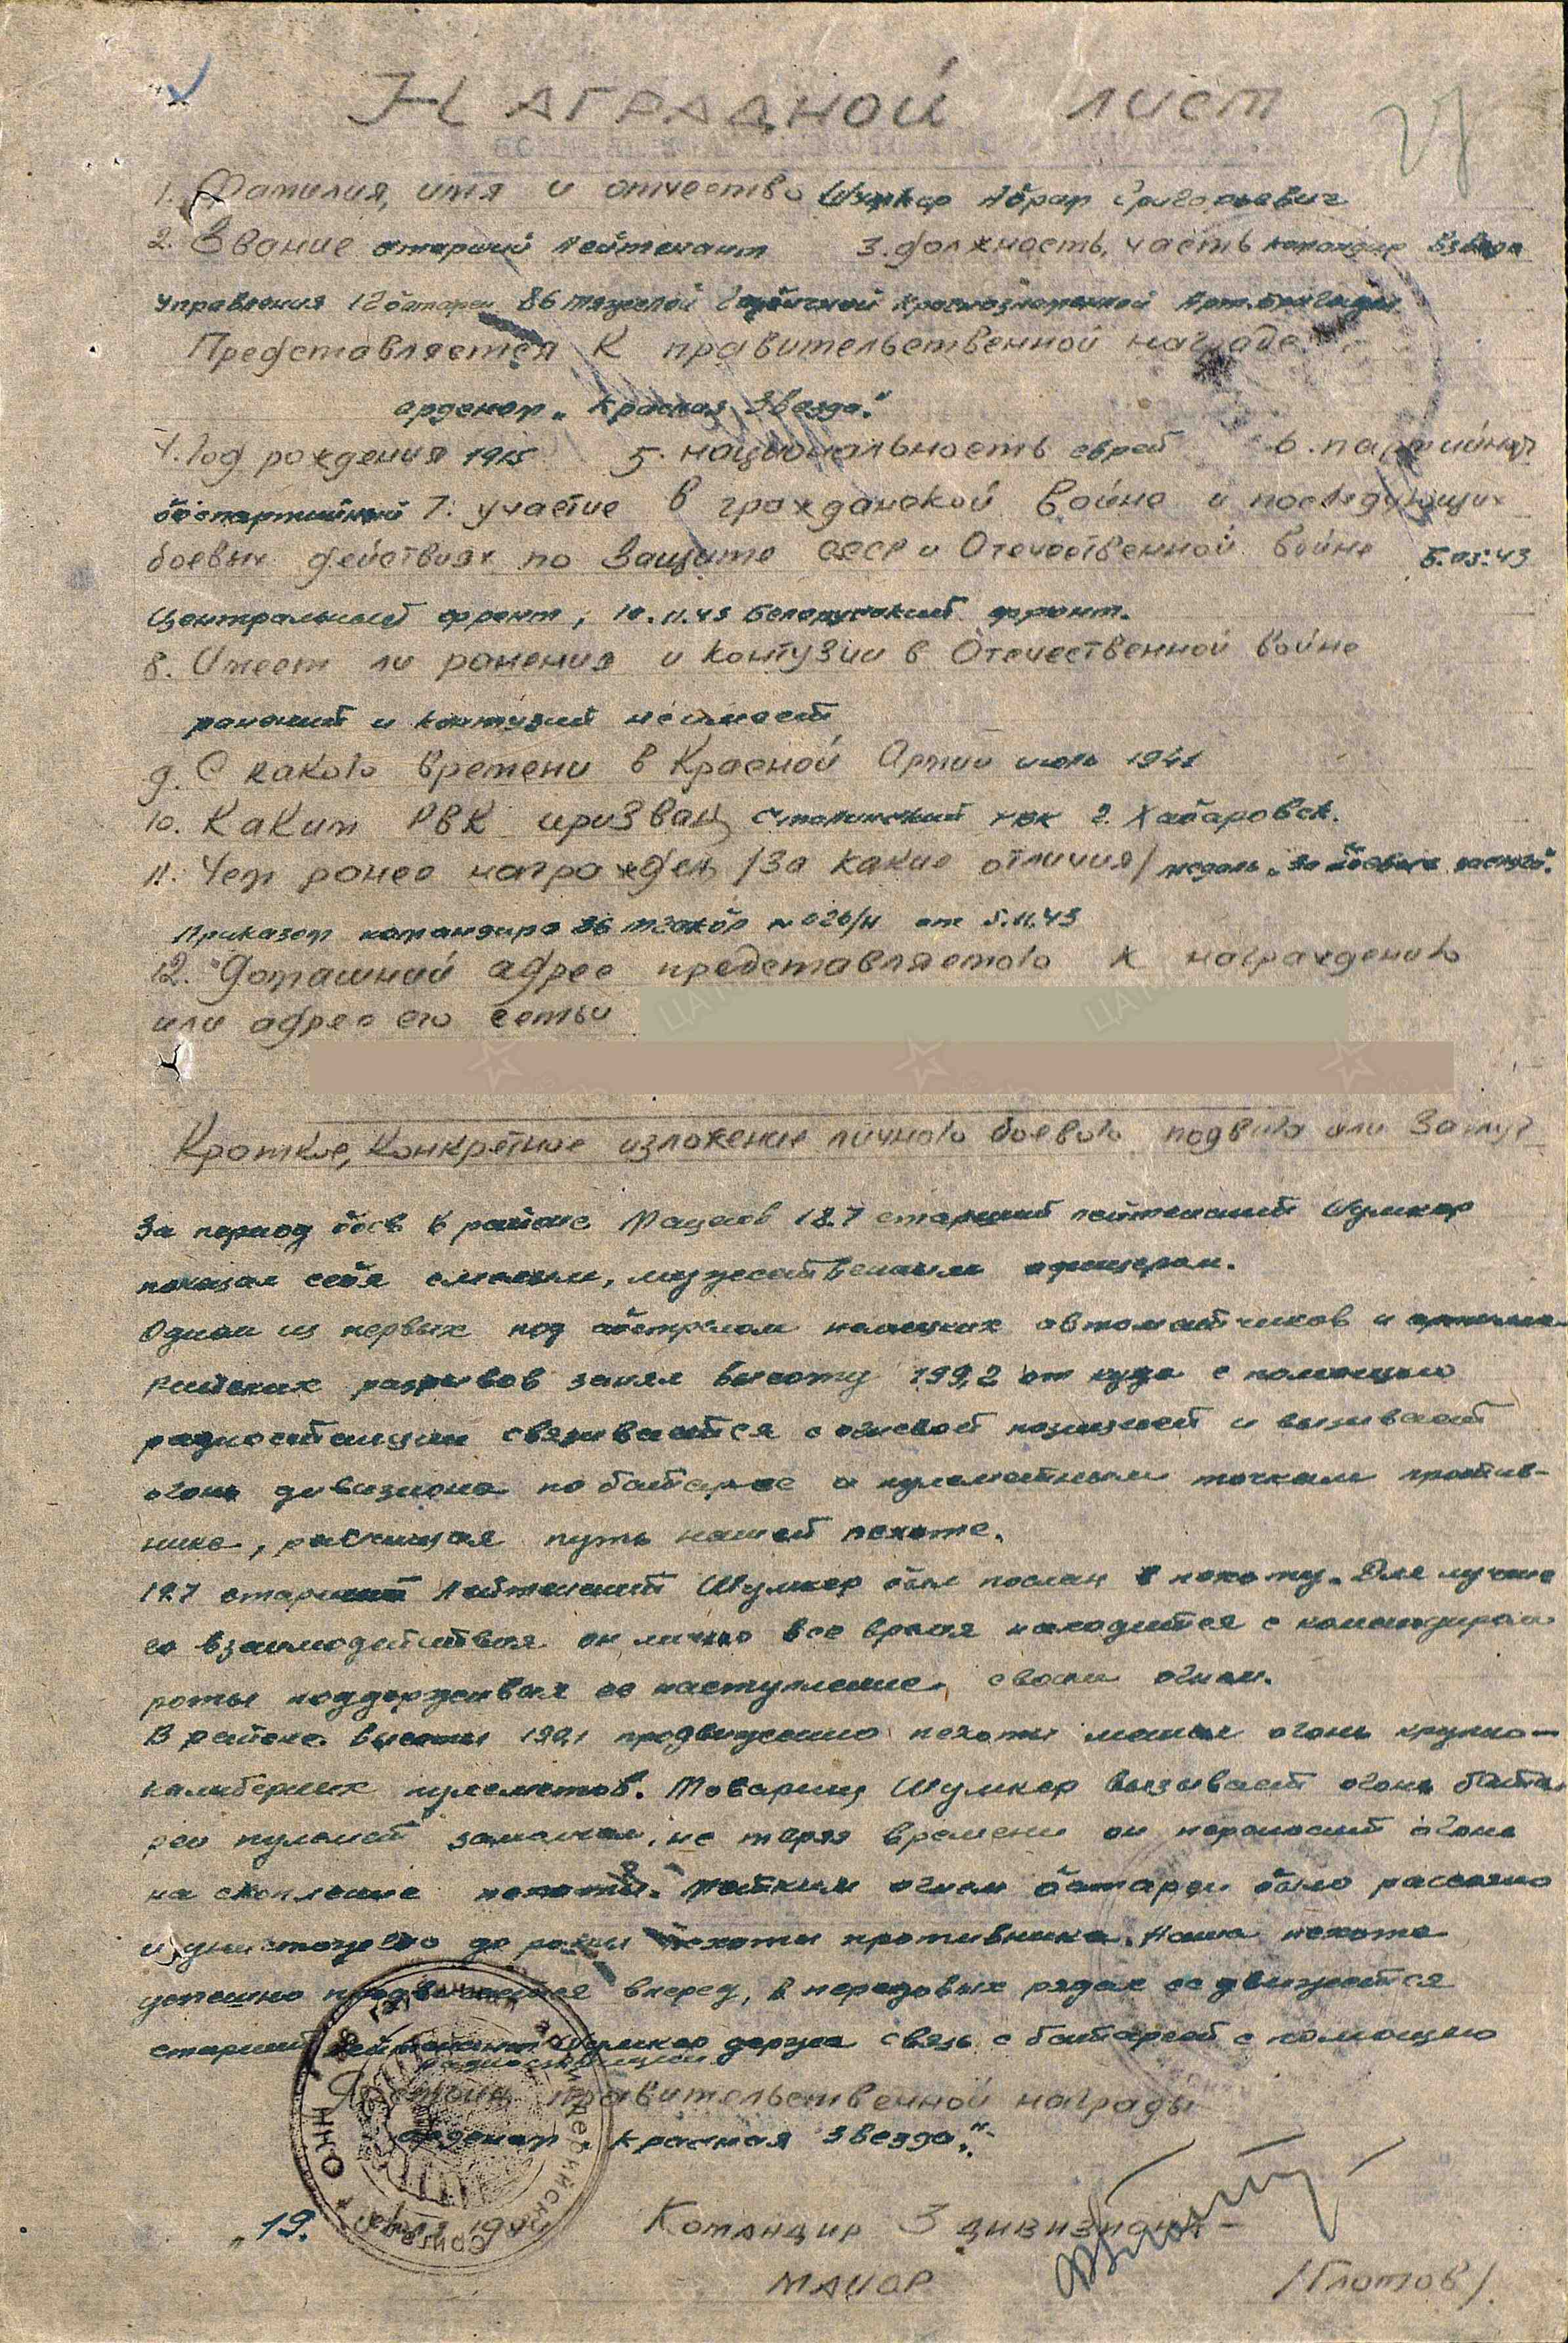 Наградной лист
1. Фамилия, имя и отчество Шумкер Абрам Григорьевич
2. Звание старший лейтенант 3. должность, часть командир взвода
управления 12 батареи 86 тяжелой Гаубичной Краснознаменной Арт. бригады
Представляется к правительственной награде
орденом „Красная Звезда“
4. Год рождения 1915 5. национальность еврей 6. партийность
беспартийный 7. участие в гражданской войне и последующих
боевых действиях по защите СССР и Отечественной войне 5.03.43
Центральный фронт, 10.11.43 Белорусский фронт.
8. Имеет ли ранения и контузии в Отечественной войне
ранений и контузий не имеет
9. С какого времени в Красной Армии июль 1941
10. Каким РВК призван Сталинский РВК г. Хабаровск.
11. Чем ранее награжден /за какие отличия/ медаль „За боевые заслуги“
Приказом командира 86 тгакбр № 026/н от 5.11.43
12. Домашний адрес представляемого к награждению
или адрес его семьи
Краткое, конкретное изложение личного боевого подвига или заслуг
За период боев в районе Мацеюв 18.7 старший лейтенант Шумкер
показал себя смелым, мужественным офицером.
Одним из первых под обстрелом немецких автоматчиков и артилле-
рийских разрывов занял высоту 199,2 от куда с помощью
радиостанции связывается с огневой позицией и вызывает
огонь дивизиона по батарее и пулеметным точкам против-
ника, расчищая путь нашей пехоте.
19.7 старший лейтенант Шумкер был послан в пехоту. Для лучше
го взаимодействия он лично все время находится с командиром
роты поддерживая ее наступление своим огнем.
В районе высоты 199,1 продвижению пехоты мешал огонь крупно-
калиберных пулеметов. Товарищ Шумкер вызывает огонь бата
реи пулемет замолчал, не теряя времени он переносит огонь
на скопление пехоты. Метким огнем батареи было рассеяно
и уничтожено до роты пехоты противника. Наша пехота
успешно продвигается вперед, в передовых рядах ее движется
старший лейтенант Шумкер держа связь с батареей с помощью
радиостанции.
Достоин правительственной награды
орденом „Красная Звезда“.
„19. июля 1944
Командир 3 дивизиона
майор /Глотов/